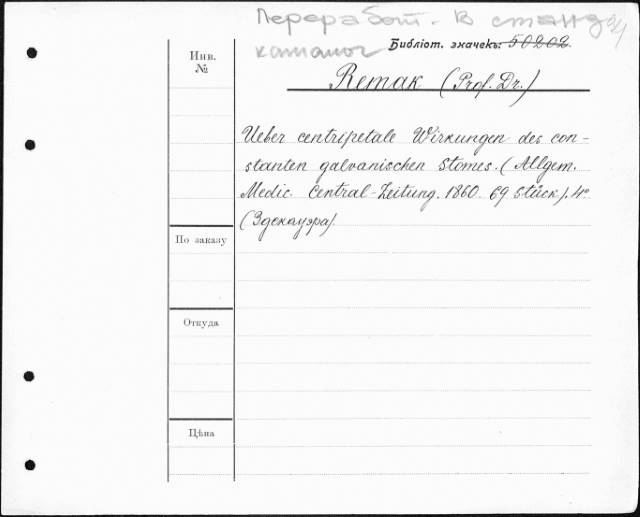 Переработ. в станд
каталог
Библіот. значекъ: 50202.
Инв.
№
Remak (Prof. Dr.)
Ueber centripetale Wirkungen des con-
stanten galvanischen Stomes. (Allgem.
Medic. Central-Zeitung. 1860. 69 Stück). 4º
(Здекауэра)
По заказу
Откуда
Цѣна